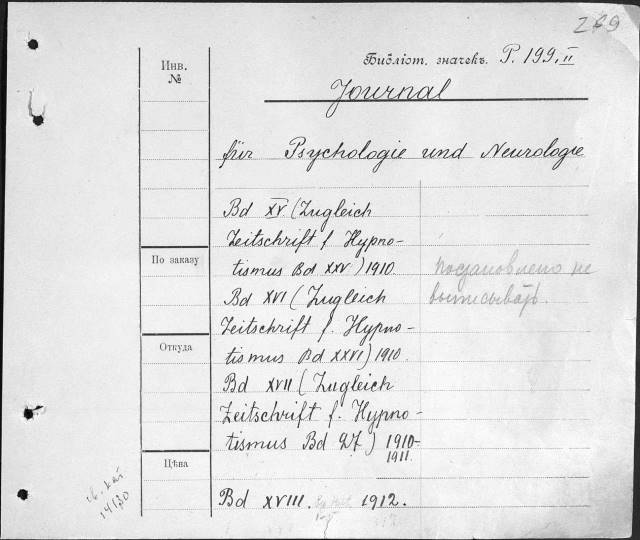 269
Библіот. значекъ. P. 199. II
Journal
Инв.
№
für Psychologie und Neurologie
Bd XV (Zugleich
Zeitschrift f. Hypno-
По заказу
tismus Bd XXV) 1910.
постановлено не
Bd XVI (Zugleich
выписывать.
Zeitschrift f. Hypno-
Откуда
tismus Bd XXVI) 1910.
Bd XVII (Zugleich
Zeitschrift f. Hypno-
tismus Bd 27) 1910-
1911.
Цѣна
Bd XVIII. 1912.
14/30